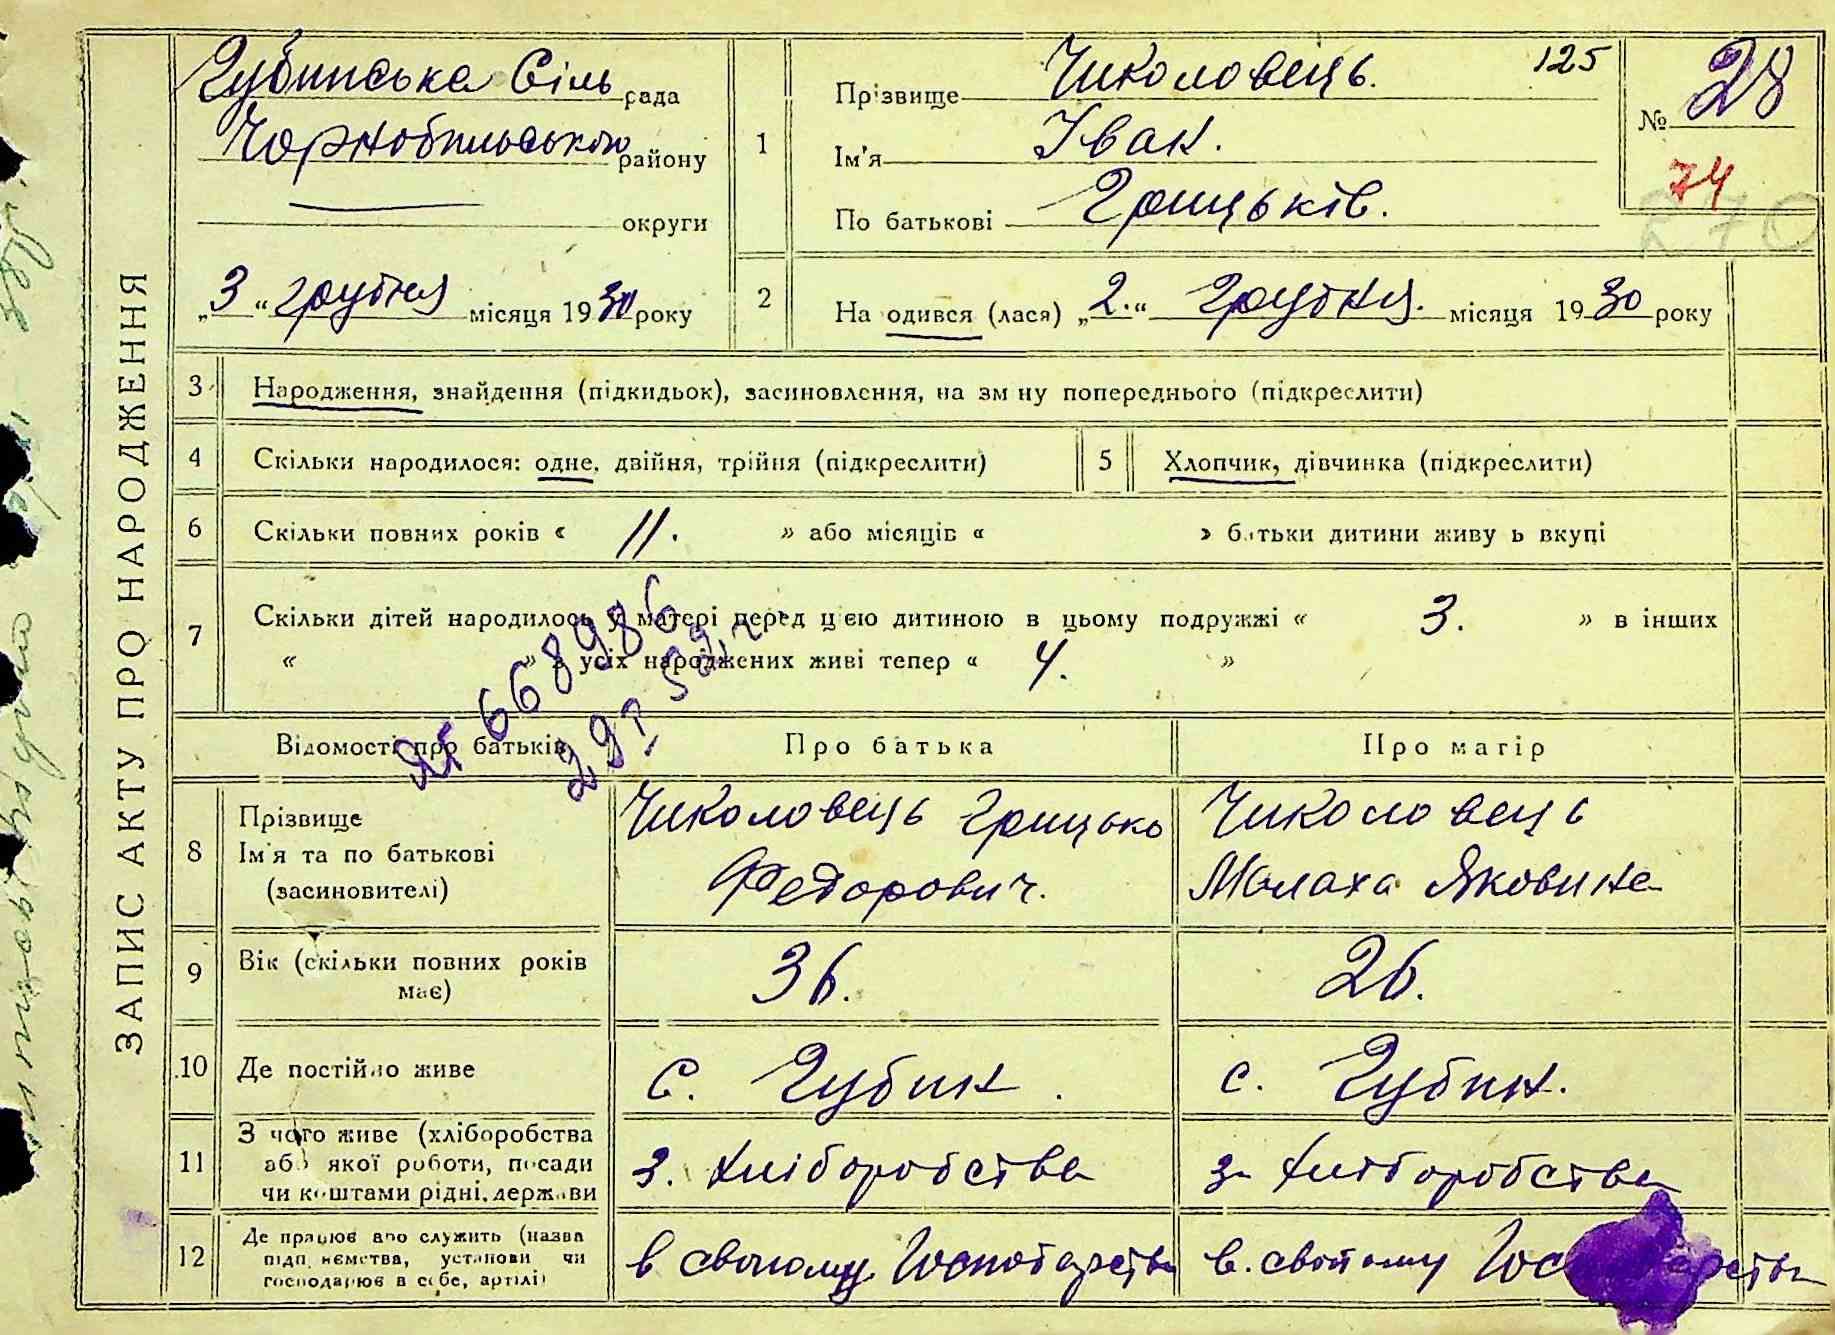 ЗАПИС АКТУ ПРО НАРОДЖЕННЯ
Губинська Сіль рада
Чорнобильського району
округи
„3“ грудня місяця 1930 року
1
Прізвище Чиколовець. 125
Ім'я Іван.
По батькові Грицьків.
№ 28
74
270
2
На одився (лася) „2.“ Грудня. місяця 1930 року
3 Народження, знайдення (підкидьок), засиновлення, на зм ну попереднього (підкреслити)
4 Скільки народилося: одне, двійня, трійня (підкреслити)
5 Хлопчик, дівчинка (підкреслити)
6 Скільки повних років « 11. » або місяців « » батьки дитини живу ь вкупі
7 Скільки дітей народилось у матері перед цією дитиною в цьому подружжі « 3. » в інших
« » з усіх народжених живі тепер « 4. »
668986
Відомості про батьків Про батька Про матір
8 Прізвище
Ім'я та по батькові
(засиновителі)
Чиколовець Грицько
Федорович.
Чиколовець
Малаха Яковина
9 Вік (скільки повних років
має)
36.
26.
10 Де постійно живе
с. Губин.
с. Губин.
11 З чого живе (хліборобства
або якої роботи, посади
чи коштами рідні, держави
з. хліборобства
з. хліборобства
12 Де працює або служить (назва
підп ємства, установи чи
господарює в себе, артілі)
в своюму Господарстві
в. свойому Гос дарстві